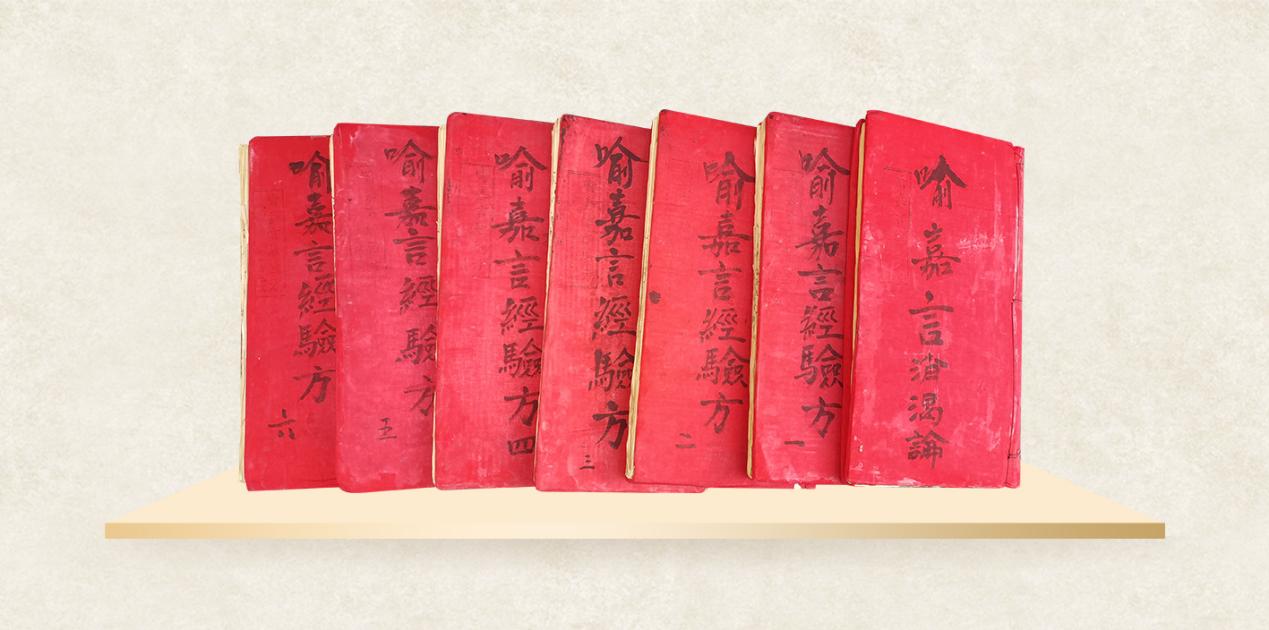 喻嘉言消渴論
喻嘉言經驗方 一
喻嘉言經驗方 二
喻嘉言經驗方 三
喻嘉言經驗方 四
喻嘉言經驗方 五
喻嘉言經驗方 六